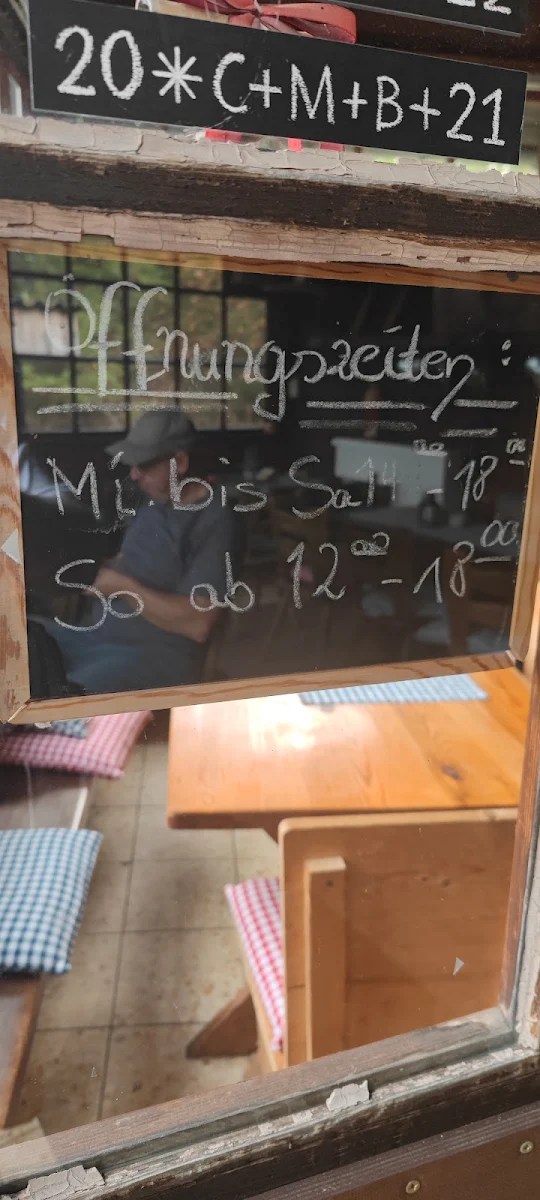 22
20*C+M+B+21
Öffnungszeiten:
Mi. bis Sa 14⁰⁰-18⁰⁰
So ab 12⁰⁰-18⁰⁰